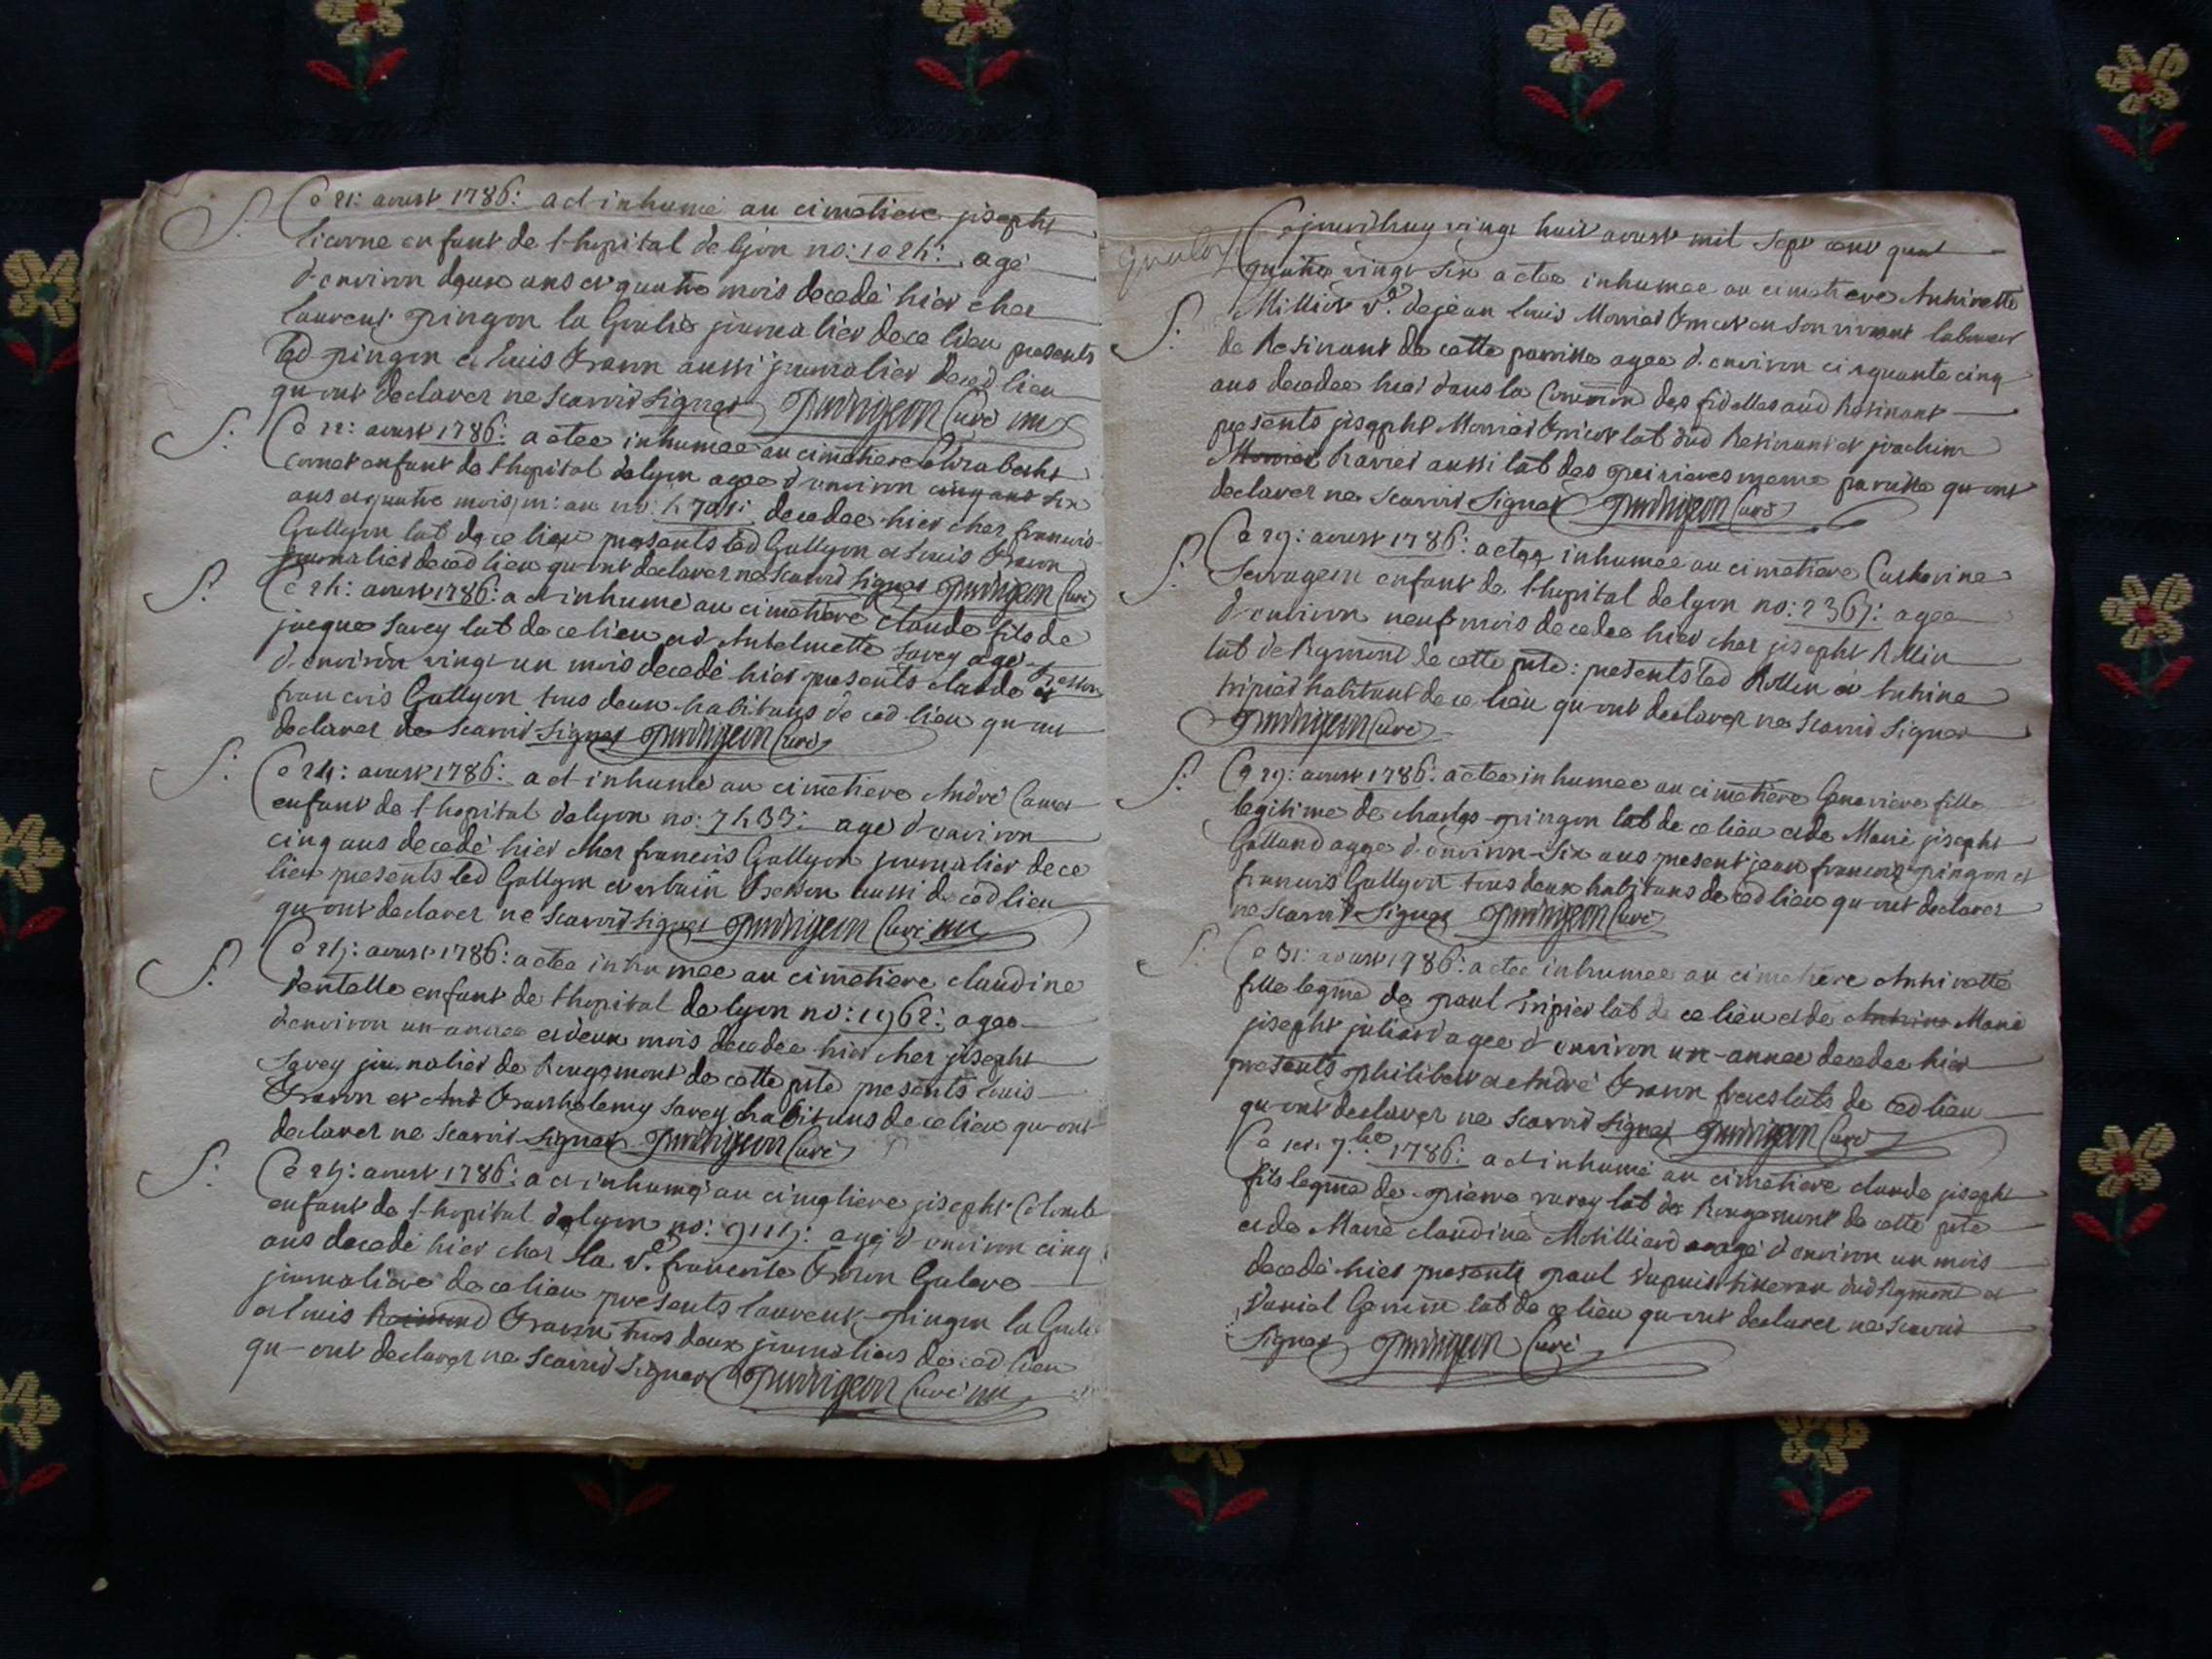 S. Ce 21: aoust 1786: a et inhumé au cimetiere joseph
licorne enfant de l hopital de lyon no: 1024: agé
d environ deux ans et quatre mois decedé hier chez
laurent pingon la Goulie journalier de ce lieu presents
led pingon et louis aussi journalier dece d lieu
qu ont declarer ne scavoir signer Curé
S. Ce 22: aoust 1786: a etee inhumee au cimetiere Elizabeth
cornet enfant de l hopital de lyon agee d environ cinq ans six
ans et quatre mois au no: decedee hier chez francois
Gallyon lab de ce lieu presents led Gallyon et louis
journalier dece d lieu qu ont declarer ne scavoir signer Curé
S. Ce 24: aoust 1786: a et inhumé au cimetiere claude fils de
jacque Savey lab de ce lieu et d Anthelmette Savey agé
d environ vingt un mois decedé hier presents claude
francois Gallyon tous deux habitans de ce d lieu qu ont
declarer ne scavoir signer Curé
S. Ce 24: aoust 1786: a et inhumé au cimetiere André
enfant de l hopital de lyon no: 7433: agé d environ
cinq ans decedé hier chez francois Gallyon journalier de ce
lieu presents led Gallyon et urbain aussi de ce d lieu
qu ont declarer ne scavoir signer Curé
S. Ce 25: aoust 1786: a etee inhumee au cimetiere claudine
dentelle enfant de l hopital de lyon no: 1962: agee
d environ un annee et deux mois decedee hier chez joseph
Savey journalier de Rougemont de cette pste presents louis
et Barthelemy Savey habitans de ce lieu qu ont
declarer ne scavoir signer Curé
S. Ce 25: aoust 1786: a et inhumé au cimetiere joseph Colomb
enfant de l hopital de lyon no: 9115: agé d environ cinq
ans decedé hier chez la ve.
journaliere de ce lieu presents laurent pingon la
et louis tous deux journaliers de ce d lieu
qu ont declarer ne scavoir signer Curé
Cejourdhuy vingt huit aoust mil sept cent quat
quatre vingt six a etee inhumee au cimetiere Anthirette
S. Millier ve. de jean louis en son vivant laboureur
de Resinant de cette parroisse agee d environ cinquante cinq
ans decedee hier dans la Commön des fidelles aud Resinant
presents joseph lab dud Resinant et joachim
aussi lab des meme paroisse qu ont
declarer ne scavoir signer Curé
S. Ce 29: aoust 1786: a etee inhumee au cimetiere Catherine
enfant de l hopital de lyon no: 2365: agee
d environ neuf mois decedee hier chez joseph Rollin
lab de Rgmont de cette pste: presents led Rollin et
tripier habitant de ce lieu qu ont declarer ne scavoir signer
Curé
S. Ce 29: aoust 1786: a etee inhumee au cimetiere Genevieve fille
legitime de charles pingon lab de ce lieu et de Marie joseph
Galland agee d environ six ans present jean francois pingon et
francois Gallyon tous deux habitans de ce d lieu qu ont declarer
ne scavoir signer Curé
S. Ce 31: aoust 1786: a etee inhumee au cimetiere Anthirette
fille legme de paul tripier lab de ce lieu et de Marie
joseph juliard agee d environ un annee decedee hier
presents philibert et André freres labs de ce d lieu
qu ont declarer ne scavoir signer Curé
Ce 1er. 7bre 1786: a et inhumé au cimetiere claude joseph
fils legme de pierre lab de Rougemont de cette pste
et de Marie claudine agé d environ un mois
decedé hier presents paul dupuis dud Rgmont et
daniel lab de ce lieu qu ont declarer ne scavoir
signer Curé